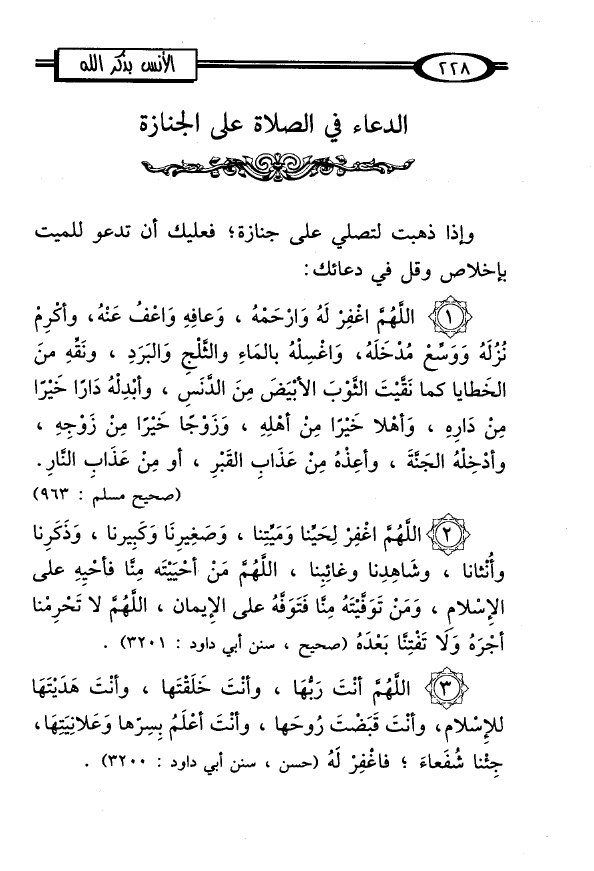 الأنس بذكر الله
٢٢٨
الدعاء في الصلاة على الجنازة
وإذا ذهبت لتصلي على جنازة؛ فعليك أن تدعو للميت
بإخلاص وقل في دعائك:
١ اللَّهُمَّ اغْفِرْ لَهُ وَارْحَمْهُ ، وَعافِهِ وَاعْفُ عَنْهُ، وأَكْرِمْ
نُزُلَهُ وَوَسِّعْ مُدْخَلَهُ، وَاغْسِلْهُ بالمَاءِ والثَّلْجِ والبَرَدِ ، ونَقِّهِ منَ
الخَطايا كما نَقَّيْتَ الثَّوْبَ الأَبْيَضَ مِنَ الدَّنَسِ ، وأَبْدِلْهُ دَارًا خَيْرًا
مِنْ دَارِهِ ، وَأَهْلا خَيْرًا مِنْ أَهْلِهِ ، وَزَوْجًا خَيْرًا مِنْ زَوْجِهِ ،
وأَدْخِلْهُ الجَنَّةَ ، وأَعِذْهُ مِنْ عَذَابِ القَبْرِ ، أو مِنْ عَذَابِ النَّارِ.
(صحيح مسلم : ٩٦٣)
٢ اللَّهُمَّ اغْفِرْ لِحَيِّنا وَمَيِّتِنا ، وَصَغِيرِنَا وَكَبِيرِنا ، وَذَكَرِنا
وأُنْثانا ، وشَاهِدِنا وغائِبِنا ، اللَّهُمَّ مَنْ أَحْيَيْتَه مِنَّا فأَحْيِهِ على
الإِسْلامِ ، وَمَنْ تَوَفَّيْتَهُ مِنَّا فَتَوَفَّهُ على الإيمان ، اللَّهُمَّ لا تَحْرِمْنا
أجرَهُ وَلَا تَفْتِنَّا بَعْدَهُ (صحيح ، سنن أبي داود : ٣٢٠١) .
٣ اللَّهُمَّ أَنْتَ رَبُّهَا ، وأَنْتَ خَلَقْتَها ، وأَنْتَ هَدَيْتَهَا
للإِسْلامِ، وأَنْتَ قَبَضْتَ رُوحَها ، وأَنْتَ أَعْلَمُ بِسِرِّها وَعَلانِيَتِهَا،
جِئْنا شُفَعاءَ ؛ فاغْفِرْ لَهُ (حسن ، سنن أبي داود : ٣٢٠٠) .